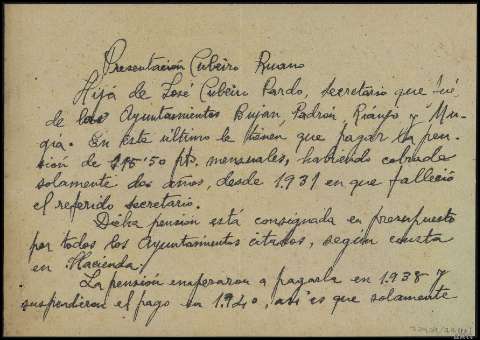 Presentación Cubeiro Ruano
Hija de José Cubeiro Pardo, secretario que fué
de los Ayuntamientos Bujan, Padrón, Rianjo y Mu-
gia. En este último le tienen que pagar la pen-
sión de 115'50 pts. mensuales, habiendo cobrado
solamente dos años, desde 1931 en que falleció
el referido secretario.
Dicha pensión está consignada en presupuesto
por todos los Ayuntamientos citados, según consta
en Hacienda.
La pensión empezaron a pagarla en 1.938 y
suspendieron el pago en 1.940, así es que solamente